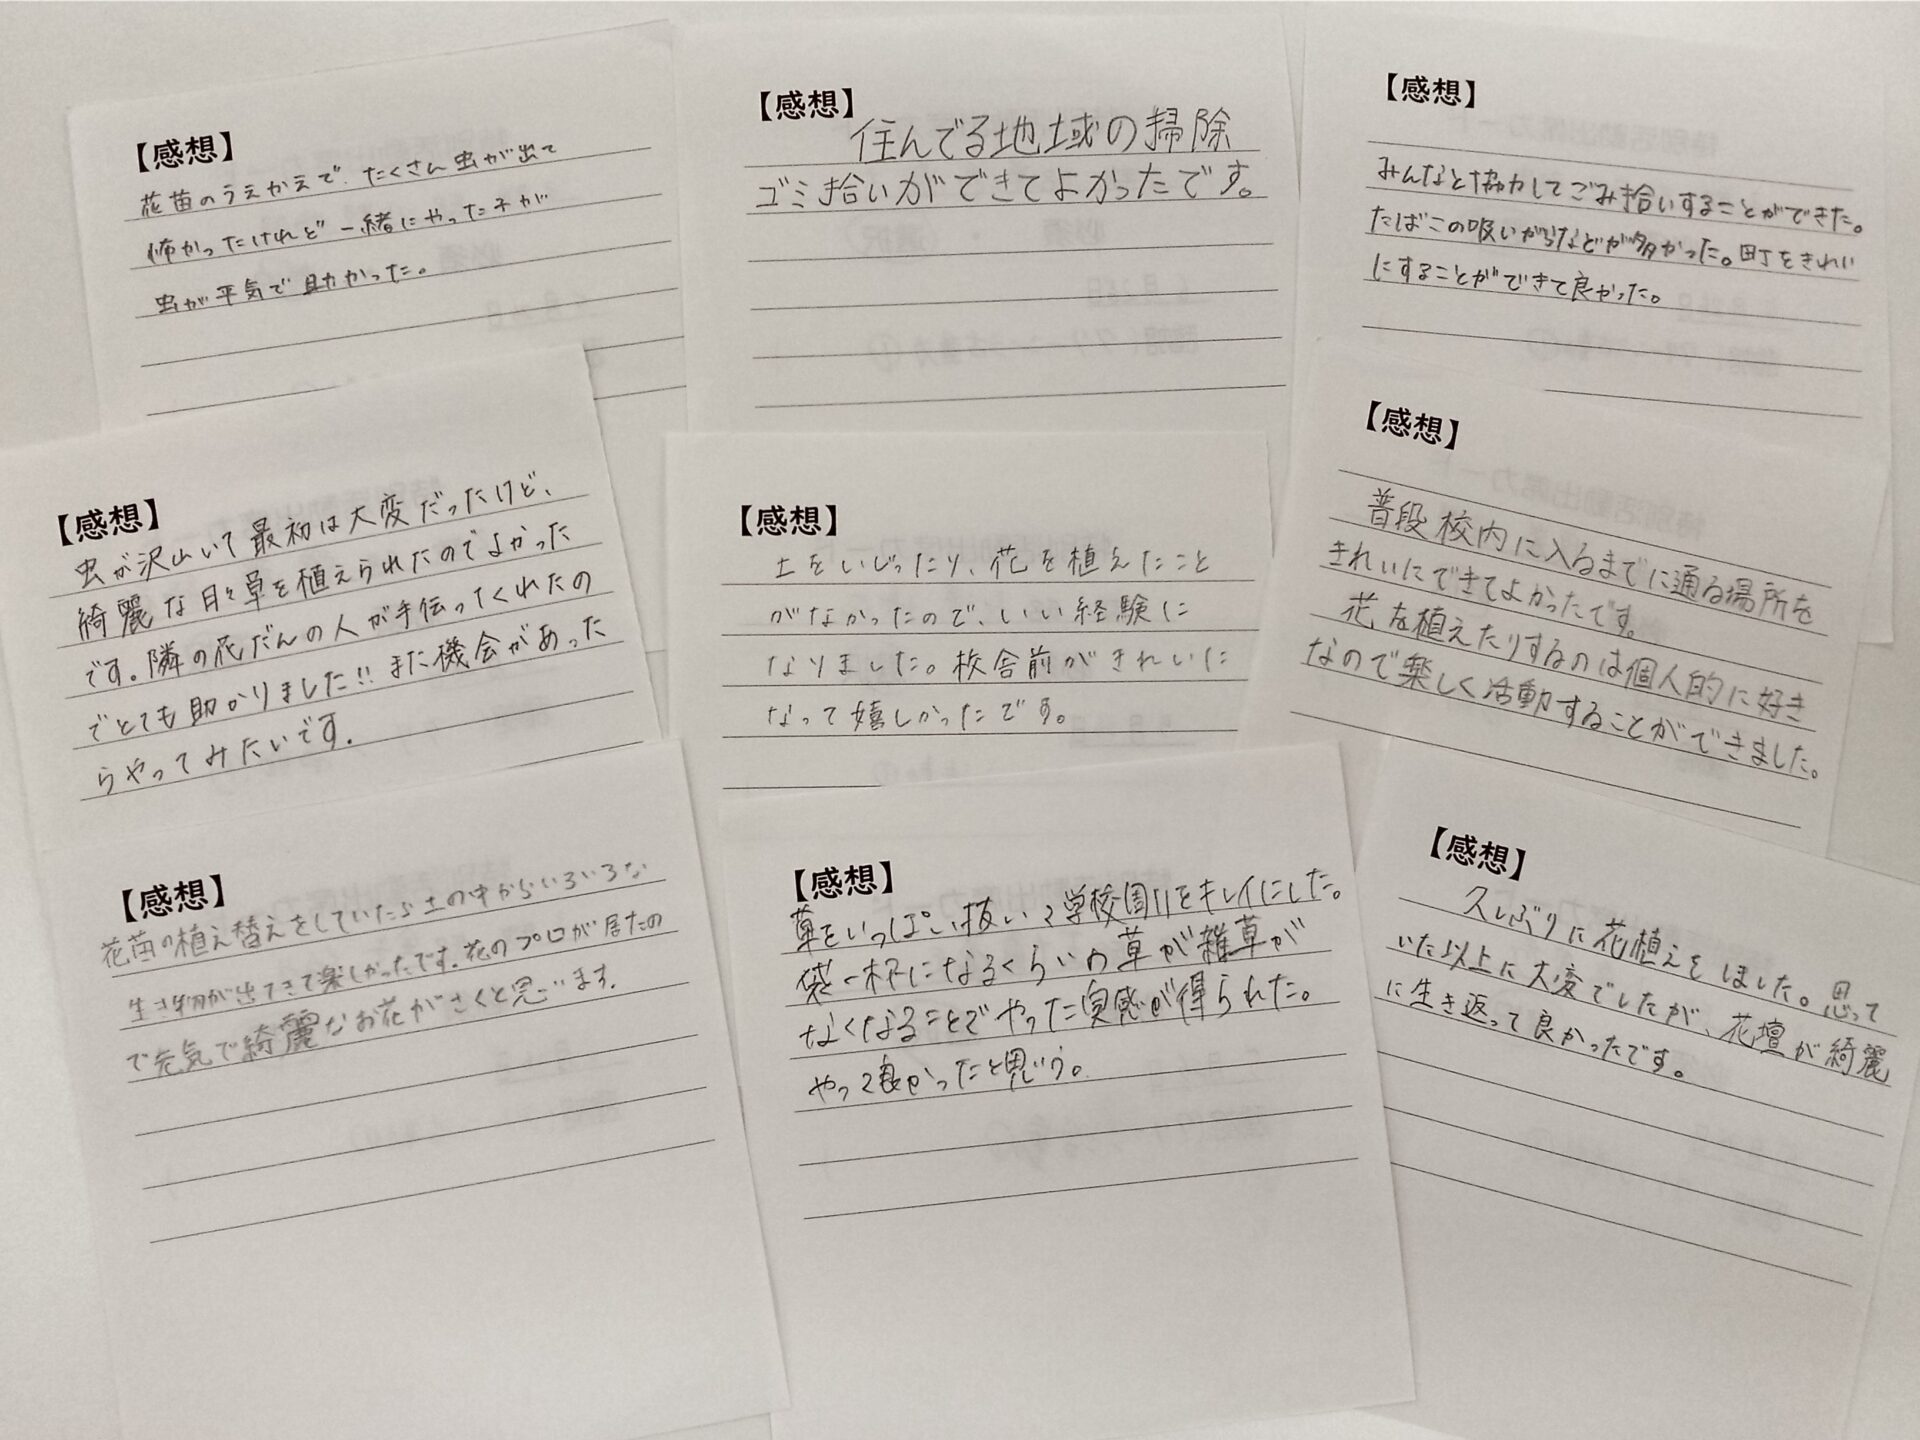 【感想】
花苗のうえかえで、たくさん虫が出て
怖かったけれど一緒にやった子が
虫が平気で助かった。
【感想】
住んでる地域の掃除
ゴミ拾いができてよかったです。
【感想】
みんなと協力してごみ拾いすることができた。
たばこの吸いがらなどが多かった。町をきれい
にすることができて良かった。
【感想】
虫が沢山いて最初は大変だったけど、
綺麗な日々草を植えられたのでよかった
です。隣の花だんの人が手伝ってくれたの
でとても助かりました!!また機会があった
らやってみたいです.
【感想】
土をいじったり、花を植えたこと
がなかったので、いい経験に
なりました。校舎前がきれいに
なって嬉しかったです。
【感想】
普段校内に入るまでに通る場所を
きれいにできてよかったです。
花を植えたりするのは個人的に好き
なので楽しく活動することができました。
【感想】
花苗の植え替えをしていたら土の中からいろいろな
生き物が出てきて楽しかったです.花のプロが居たの
で元気で綺麗なお花がさくと思います.
【感想】
草をいっぱい抜いて学校周りをキレイにした。
袋一杯になるくらいの草が雑草が
なくなることでやった実感が得られた。
やって良かったと思う。
【感想】
久しぶりに花植えをしました。思って
いた以上に大変でしたが、花壇が綺麗
に生き返って良かったです。